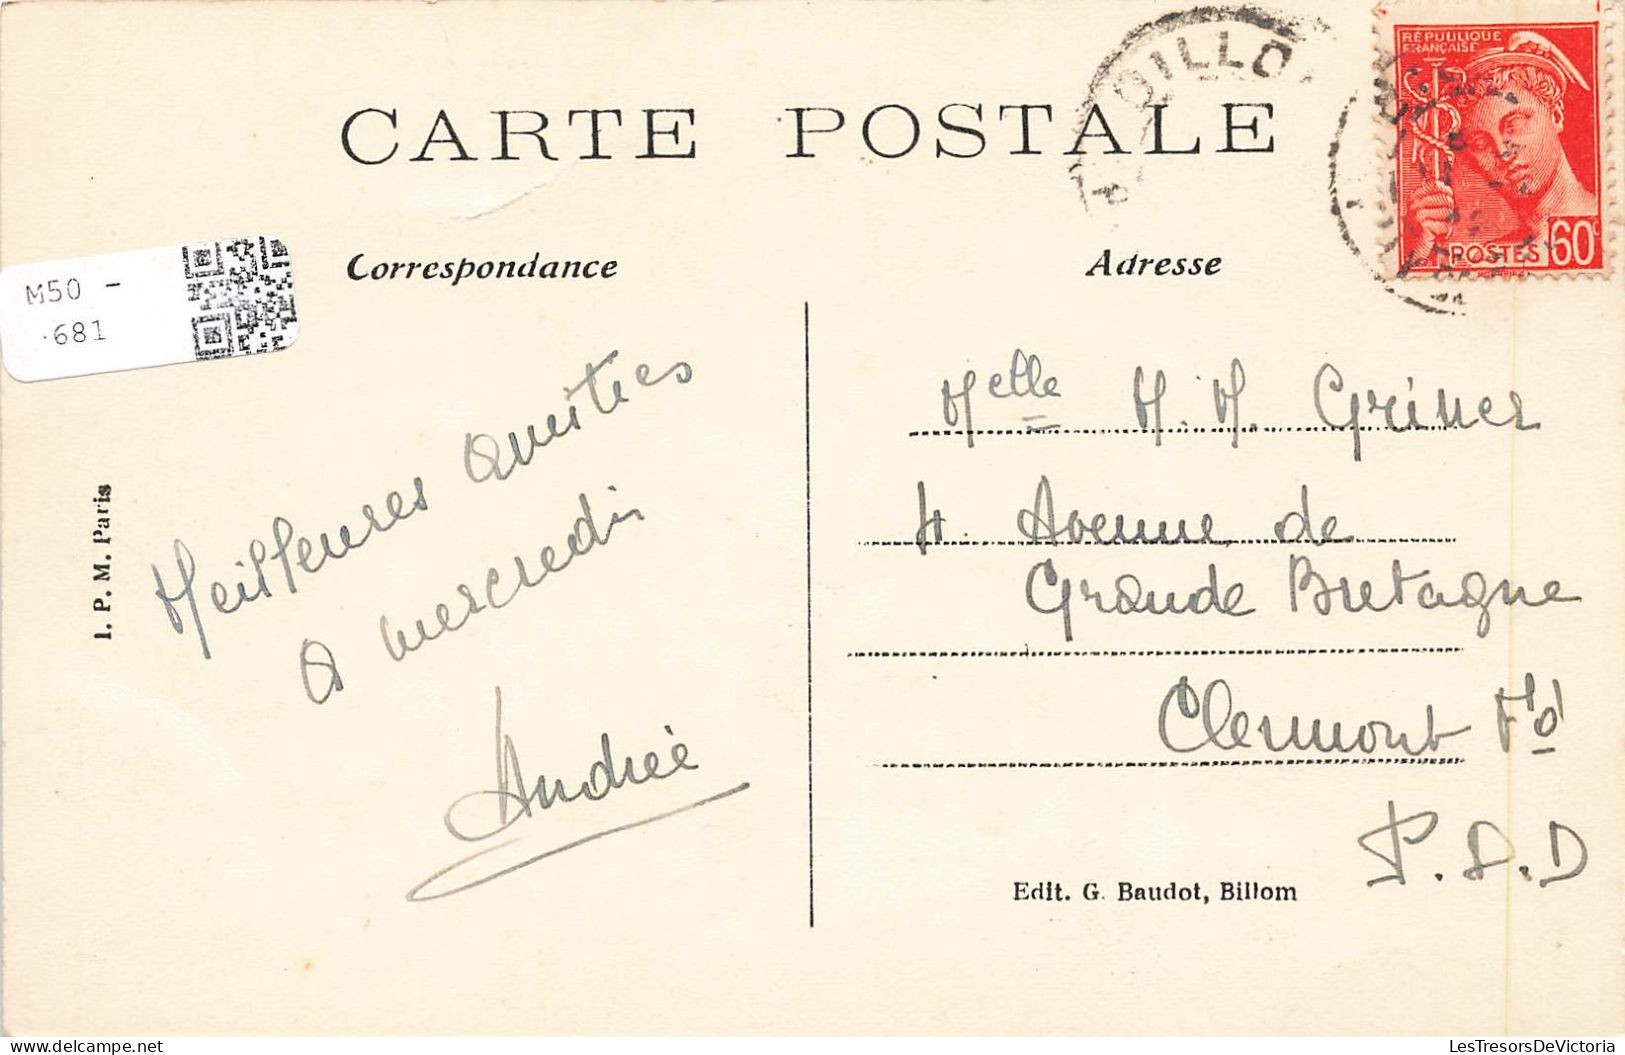 CARTE POSTALE
BILLO
RÉPUBLIQUE
FRANÇAISE
POSTES 60c
Correspondance
Adresse
M50 -
.681
I. P. M. Paris
Meilleures amitiés
A mercredi
Andrée
Melle M. M. Griner
4. Avenue de
Grande Bretagne
Clermont Fd
P.d.D
Edit. G. Baudot, Billom
www.LesTresorsDeVictoria.com
LesTresorsDeVictoria.com